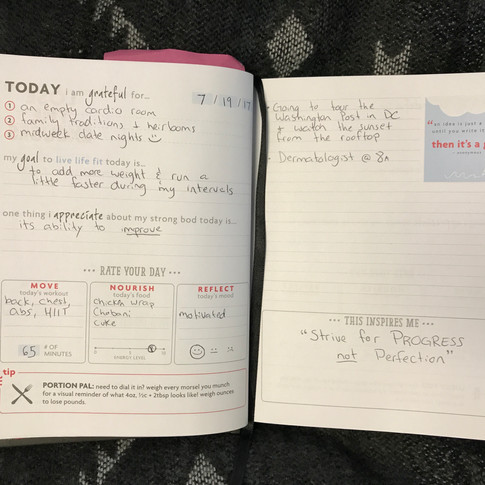 TODAY i am grateful for...
7 / 19 / 17
1 an empty cardio room
2 family traditions & heirlooms
3 midweek date nights
my goal to live life fit today is...
to add more weight & run a
little faster during my intervals
one thing i appreciate about my strong bod today is...
its ability to improve
RATE YOUR DAY
MOVE
today's workout
back, chest,
abs, HIIT
65 # OF
MINUTES
NOURISH
today's food
chicken wrap
Chobani
cuke
ENERGY LEVEL
REFLECT
today's mood
motivated
tip
PORTION PAL: need to dial it in? weigh every morsel you munch
for a visual reminder of what 4oz, ½c + 2tbsp looks like! weigh ounces
to lose pounds.
- Going to tour the
Washington Post in DC
& watch the sunset
from the rooftop
- Dermatologist @ 8A
"an idea is just a
until you write it
then it's a
THIS INSPIRES ME
"Strive for PROGRESS
not Perfection"